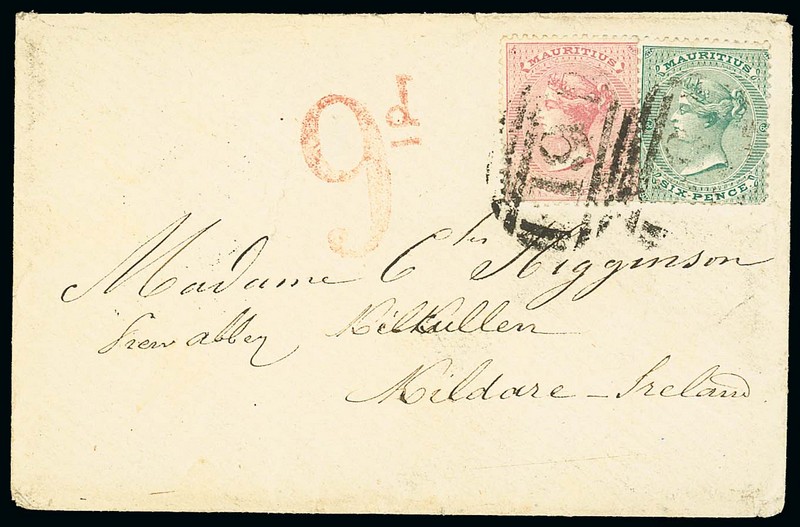 MAURITIUS
MAURITIUS
SIX-PENCE
9d
Madame Chs Higginson
abbey Kilkullen
Kildare - Ireland